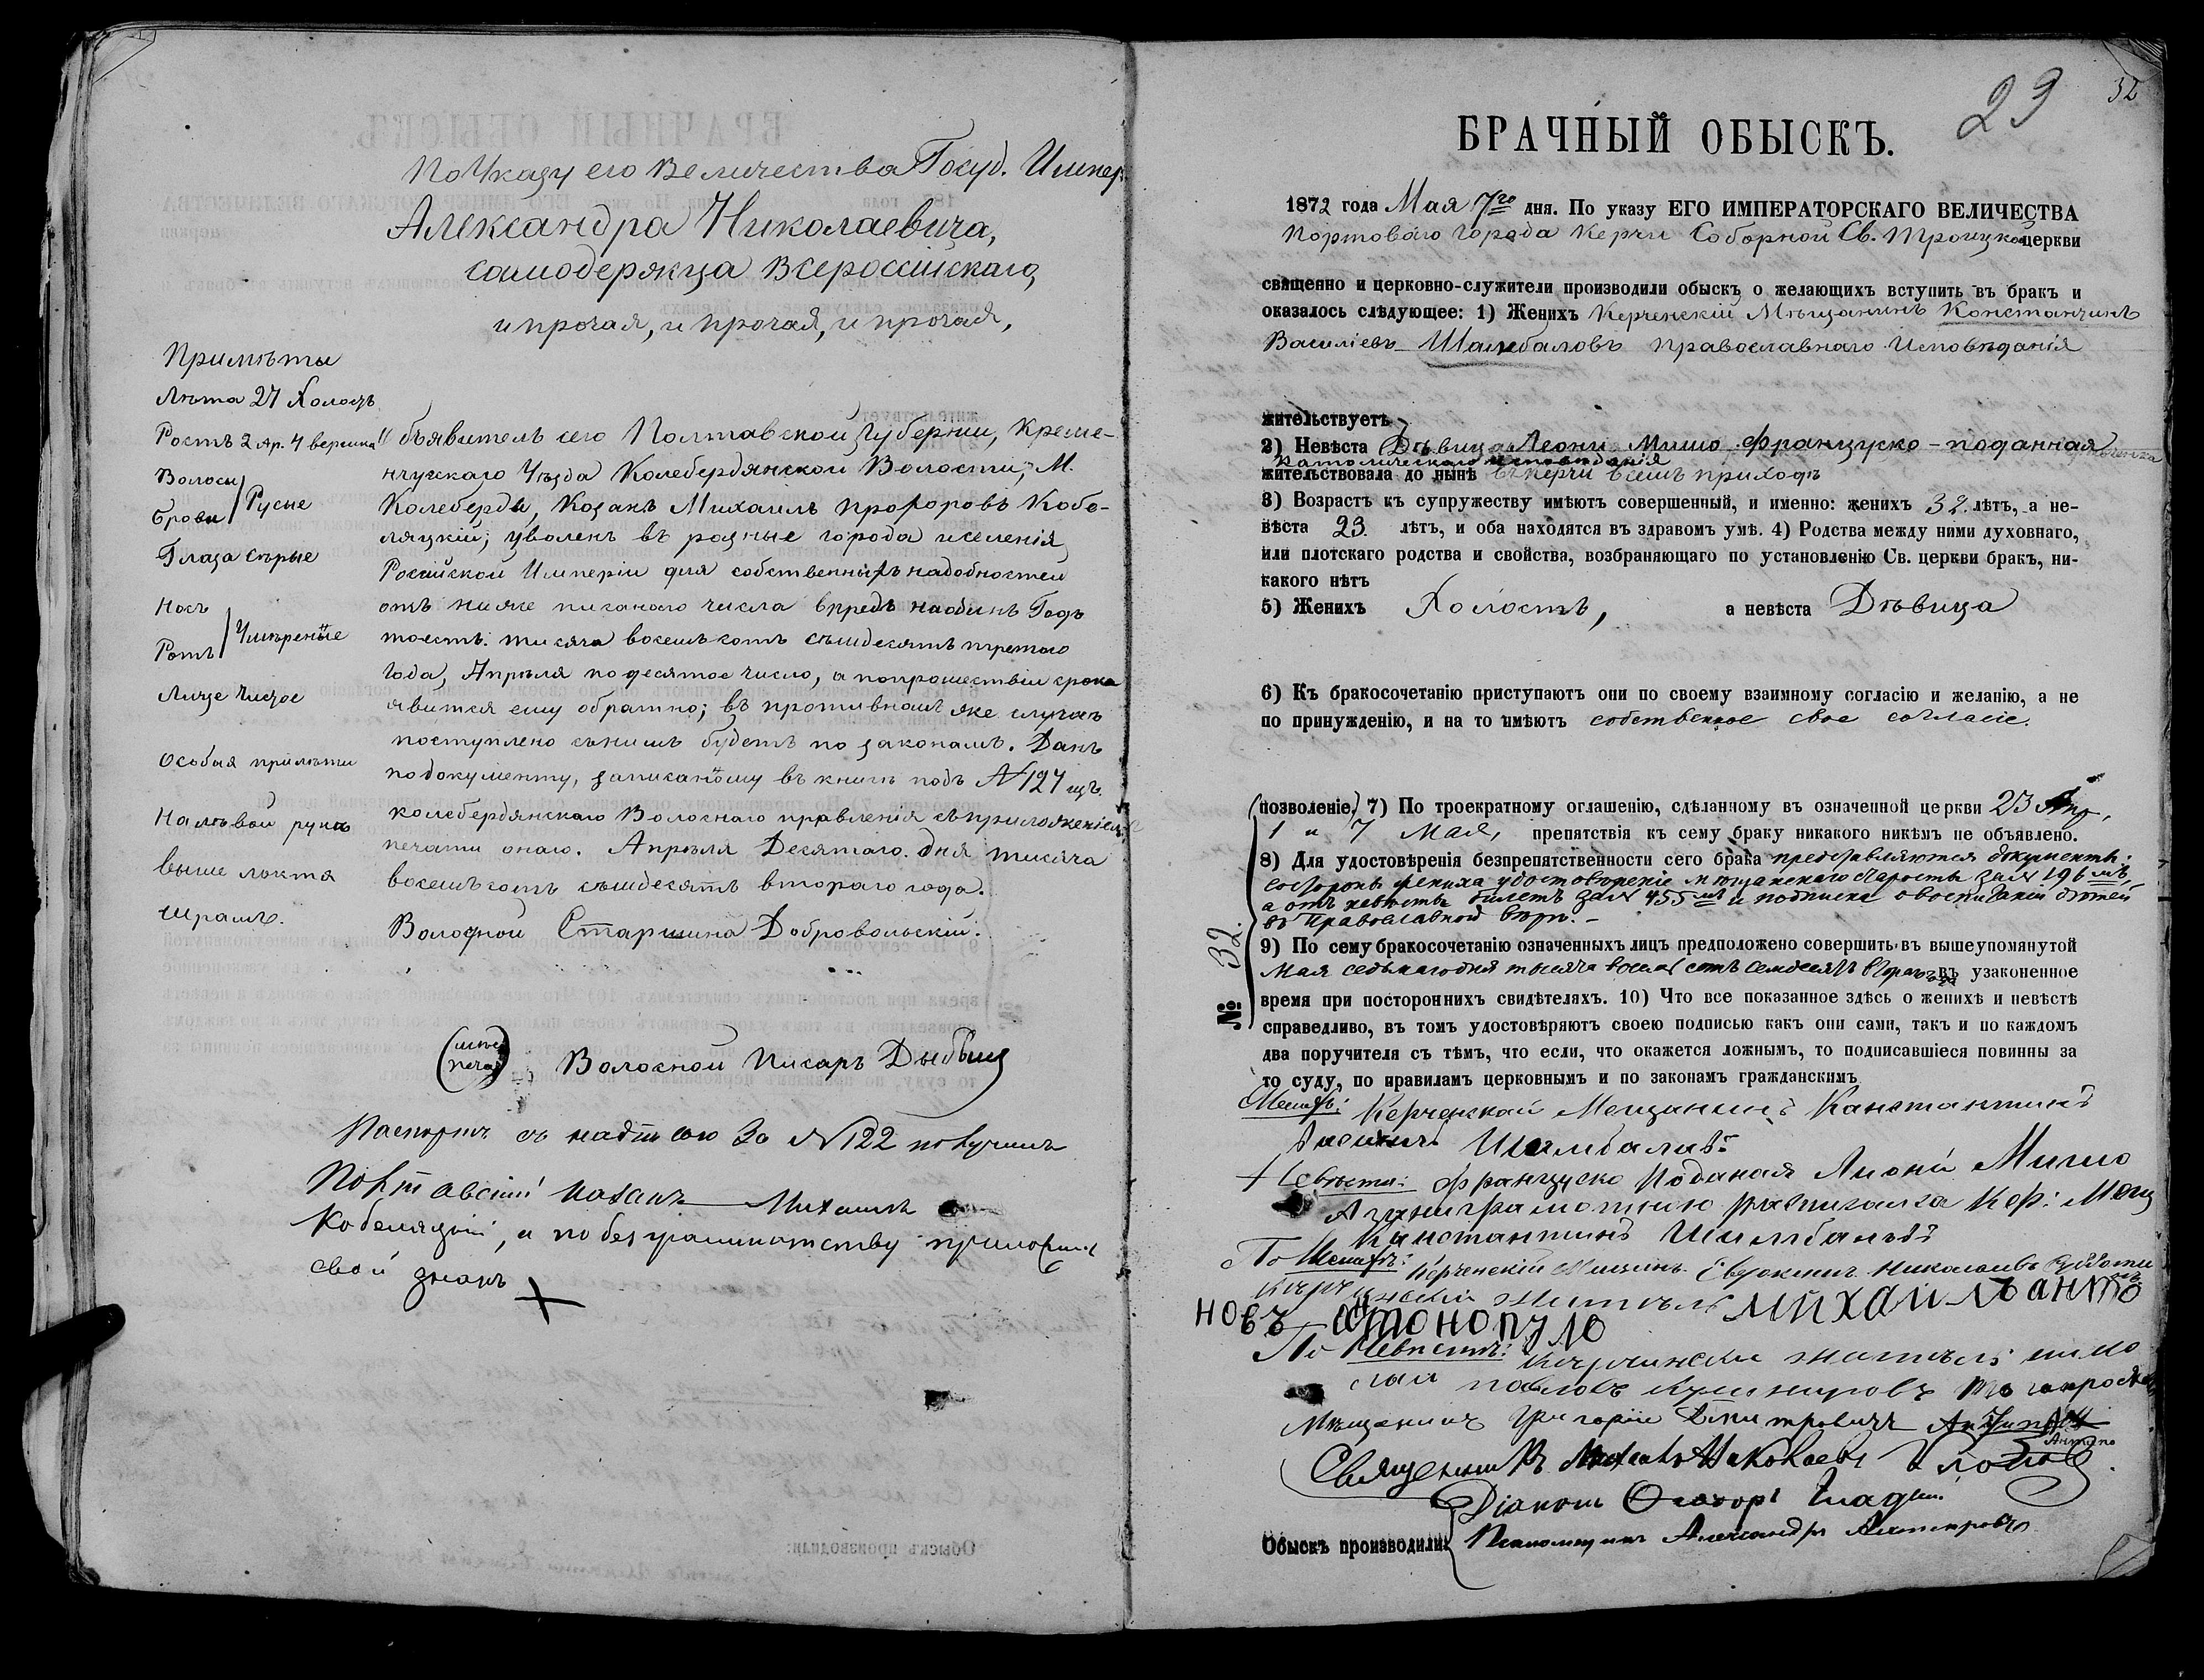 По Указу его Величества Госуд. Импер.
Александра Николаевича,
самодержца Всероссійскаго,
и прочая, и прочая, и прочая,
Примѣты
Лѣта 27 Холостъ
Ростъ 2 ар. 4 вершка
Волосы
Брови
Русые
Глаза сѣрые
Носъ
Ротъ
Умѣреные
Лице Чистое
Особыя примѣти
На лѣвой рукѣ
выше локтя
шрамъ.
Объявитель сего Полтавской Губерніи, Креме-
нчугскаго Уѣзда Колебердянской Волости, М.
Колеберды, Козакъ Михаилъ Прохоровъ Кобе-
ляцкій; уволенъ въ разные города и селенія
Росийской Имперіи для собственныхъ надобностей
отъ ниже писаного числа впредь на одинъ Годъ
тоесть тисяча восемьсотъ сѣмдесятъ третого
Года, Апрѣля по десятое число, а по прошествіи срока
явится ему обратно; въ противномъ же случаѣ
поступлено сънимъ будетъ по законамъ. Данъ
по документу, записаному въ книгѣ подъ № 127 изъ
колебердянскаго Волоснаго правленія съ приложеніемъ
печати онаго. Апрѣля Десятаго дня тисяча
восемьсотъ сѣмдесятъ второго года.
Волосной Старшина Добровольскій.
Волосной Писарь
Паспортъ съ надписью За № 122 получилъ
Полтавскій казакъ Михаилъ
Кобеляцкій, а по безграмотству приложилъ
свой знакъ +
29
32
БРАЧНЫЙ ОБЫСКЪ.
1872 года Мая 7го дня. По указу ЕГО ИМПЕРАТОРСКАГО ВЕЛИЧЕСТВА
Портоваго Города Керчи Соборной Св. Троицкой церкви
священно и церковно-служители производили обыскъ о желающихъ вступить въ бракъ и
оказалось слѣдующее: 1) Женихъ Керченскій Мѣщанинъ Константинъ
Василіевъ Шалибаловъ православнаго Исповѣданія
жительствуетъ
2) Невѣста Дѣвица Леони Мишо Французко-поданная
Католическаго исповѣданія
жительствовала до нынѣ въ Керчи въ семъ приходѣ
3) Возрастъ къ супружеству имѣютъ совершенный, и именно: женихъ 32 лѣтъ, а не-
вѣста 23. лѣтъ, и оба находятся въ здравомъ умѣ. 4) Родства между ними духовнаго,
или плотскаго родства и свойства, возбраняющаго по установленію Св. церкви бракъ, ни-
какого нѣтъ
5) Женихъ Холостъ, а невѣста Дѣвица
6) Къ бракосочетанію приступаютъ они по своему взаимному согласію и желанію, а не
по принужденію, и на то имѣютъ собственное свое согласіе.
(позволеніе) 7) По троекратному оглашенію, сдѣланному въ означенной церкви 23 Апр,
1 и 7 Мая, препятствія къ сему браку никакого никѣмъ не объявлено.
8) Для удостовѣренія безпрепятственности сего брака представляются документы:
состороны жениха удостовѣреніе мѣщанскаго старосты за № 196мъ,
а отъ невѣсты билетъ за № 455мъ и подписка о воспитаніи дѣтей
въ Православной вѣрѣ. –
№ 32.
9) По сему бракосочетанію означенныхъ лицъ предположено совершить въ вышеупомянутой
Мая седьмагодня тысяча восемьсотъ семдесятъ втораго въ узаконенное
время при постороннихъ свидѣтеляхъ. 10) Что все показанное здѣсь о женихѣ и невѣстѣ
справедливо, въ томъ удостовѣряютъ своею подписью какъ они сами, такъ и по каждомъ
два поручителя съ тѣмъ, что если, что окажется ложнымъ, то подписавшіеся повинны за
то суду, по правиламъ церковнымъ и по законамъ гражданскимъ
Керченскай Мещанинъ Канстантинъ
Шалмбалавъ
Невѣста: французско Поданая Лиони Мишо
Кер: Мещ
Канстантинъ
По Женихѣ: Керченскій Мещан. Евдокимъ Николаевъ
житель михаилъ анто
новъ антонопуло
По Невѣстѣ: житель нико
лай павловъ Кушнировъ
Мѣщанинъ Григорій Дмитровичъ
Священникъ Михаилъ Николаевъ
Діаконъ
Обыскъ производили: Псаломщикъ Александръ